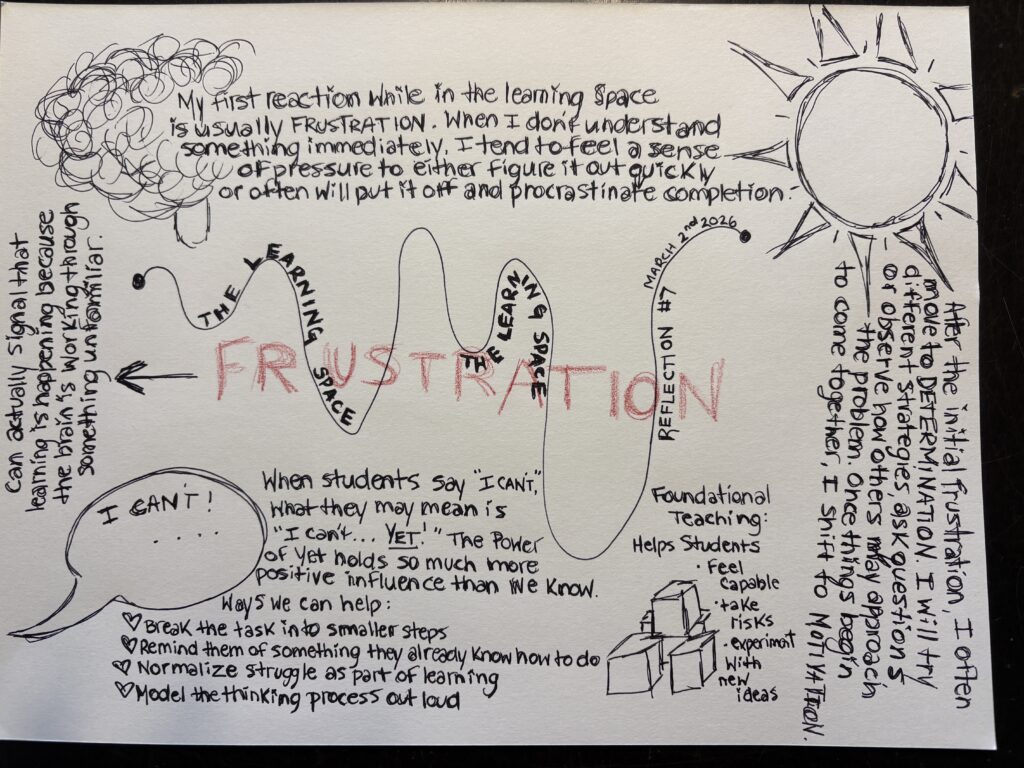 My first reaction while in the learning space
is usually FRUSTRATION. When I don't understand
something immediately, I tend to feel a sense
of pressure to either figure it out quickly
or often will put it off and procrastinate completion.
THE LEARNING SPACE
THE LEARNING SPACE
REFLECTION #7 MARCH 2nd 2026
FRUSTRATION
Can actually signal that
learning is happening because
the brain is working through
something unfamiliar.
After the initial frustration, I often
move to DETERMINATION. I will try
different strategies, ask questions
or observe how others may approach
the problem. Once things begin
to come together, I shift to MOTIVATION.
I CAN'T!
....
When students say "I CAN'T,"
what they may mean is
"I can't... YET!" The Power
of Yet holds so much more
positive influence than we know.
Ways we can help:
Break the task into smaller steps
Remind them of something they already know how to do
Normalize struggle as part of learning
Model the thinking process out loud
Foundational
Teaching:
Helps Students
• Feel
capable
• take
risks
• experiment
with
new
ideas